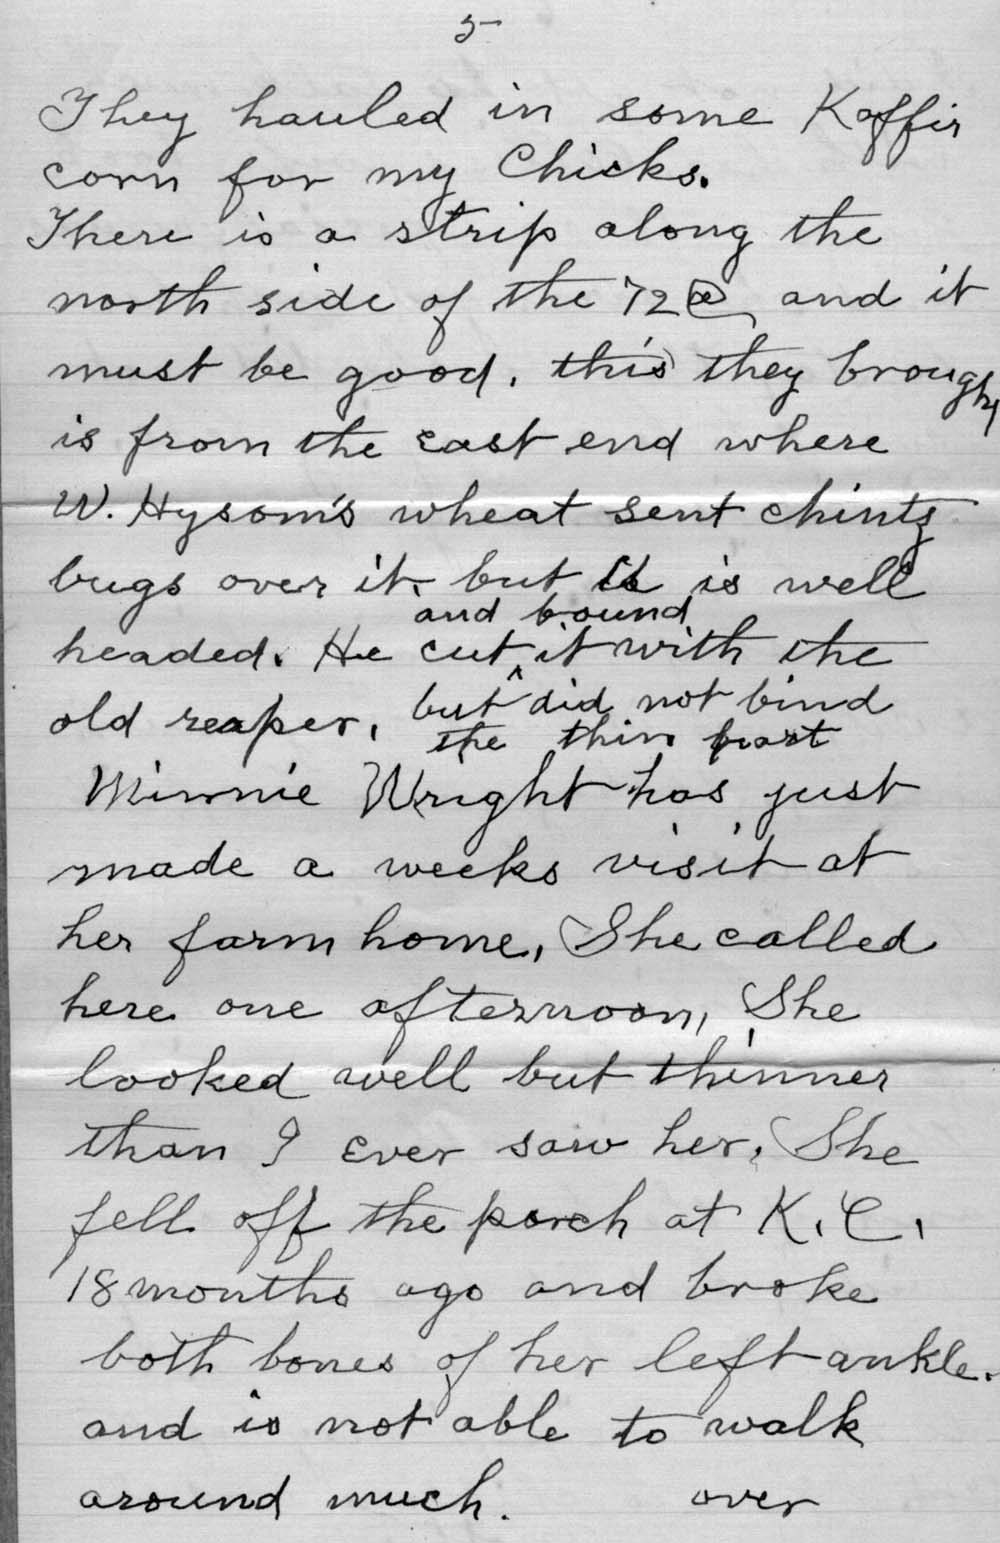 5
They hauled in some Kaffir
corn for my Chicks.
There is a strip along the
north side of the 72 @ and it
must be good. this they brought
is from the east end where
W. Hysom's wheat sent chintz
bugs over it. but it is well
headed. He cut ^ and bound it with the
old reaper, but did not bind
the thin part
Minnie Wright has just
made a weeks visit at
her farm home, She called
here one afternoon, She
looked well but thinner
than I ever saw her. She
fell off the porch at K. C.,
18 months ago and broke
both bones of her left ankle.
and is not able to walk
around much. over